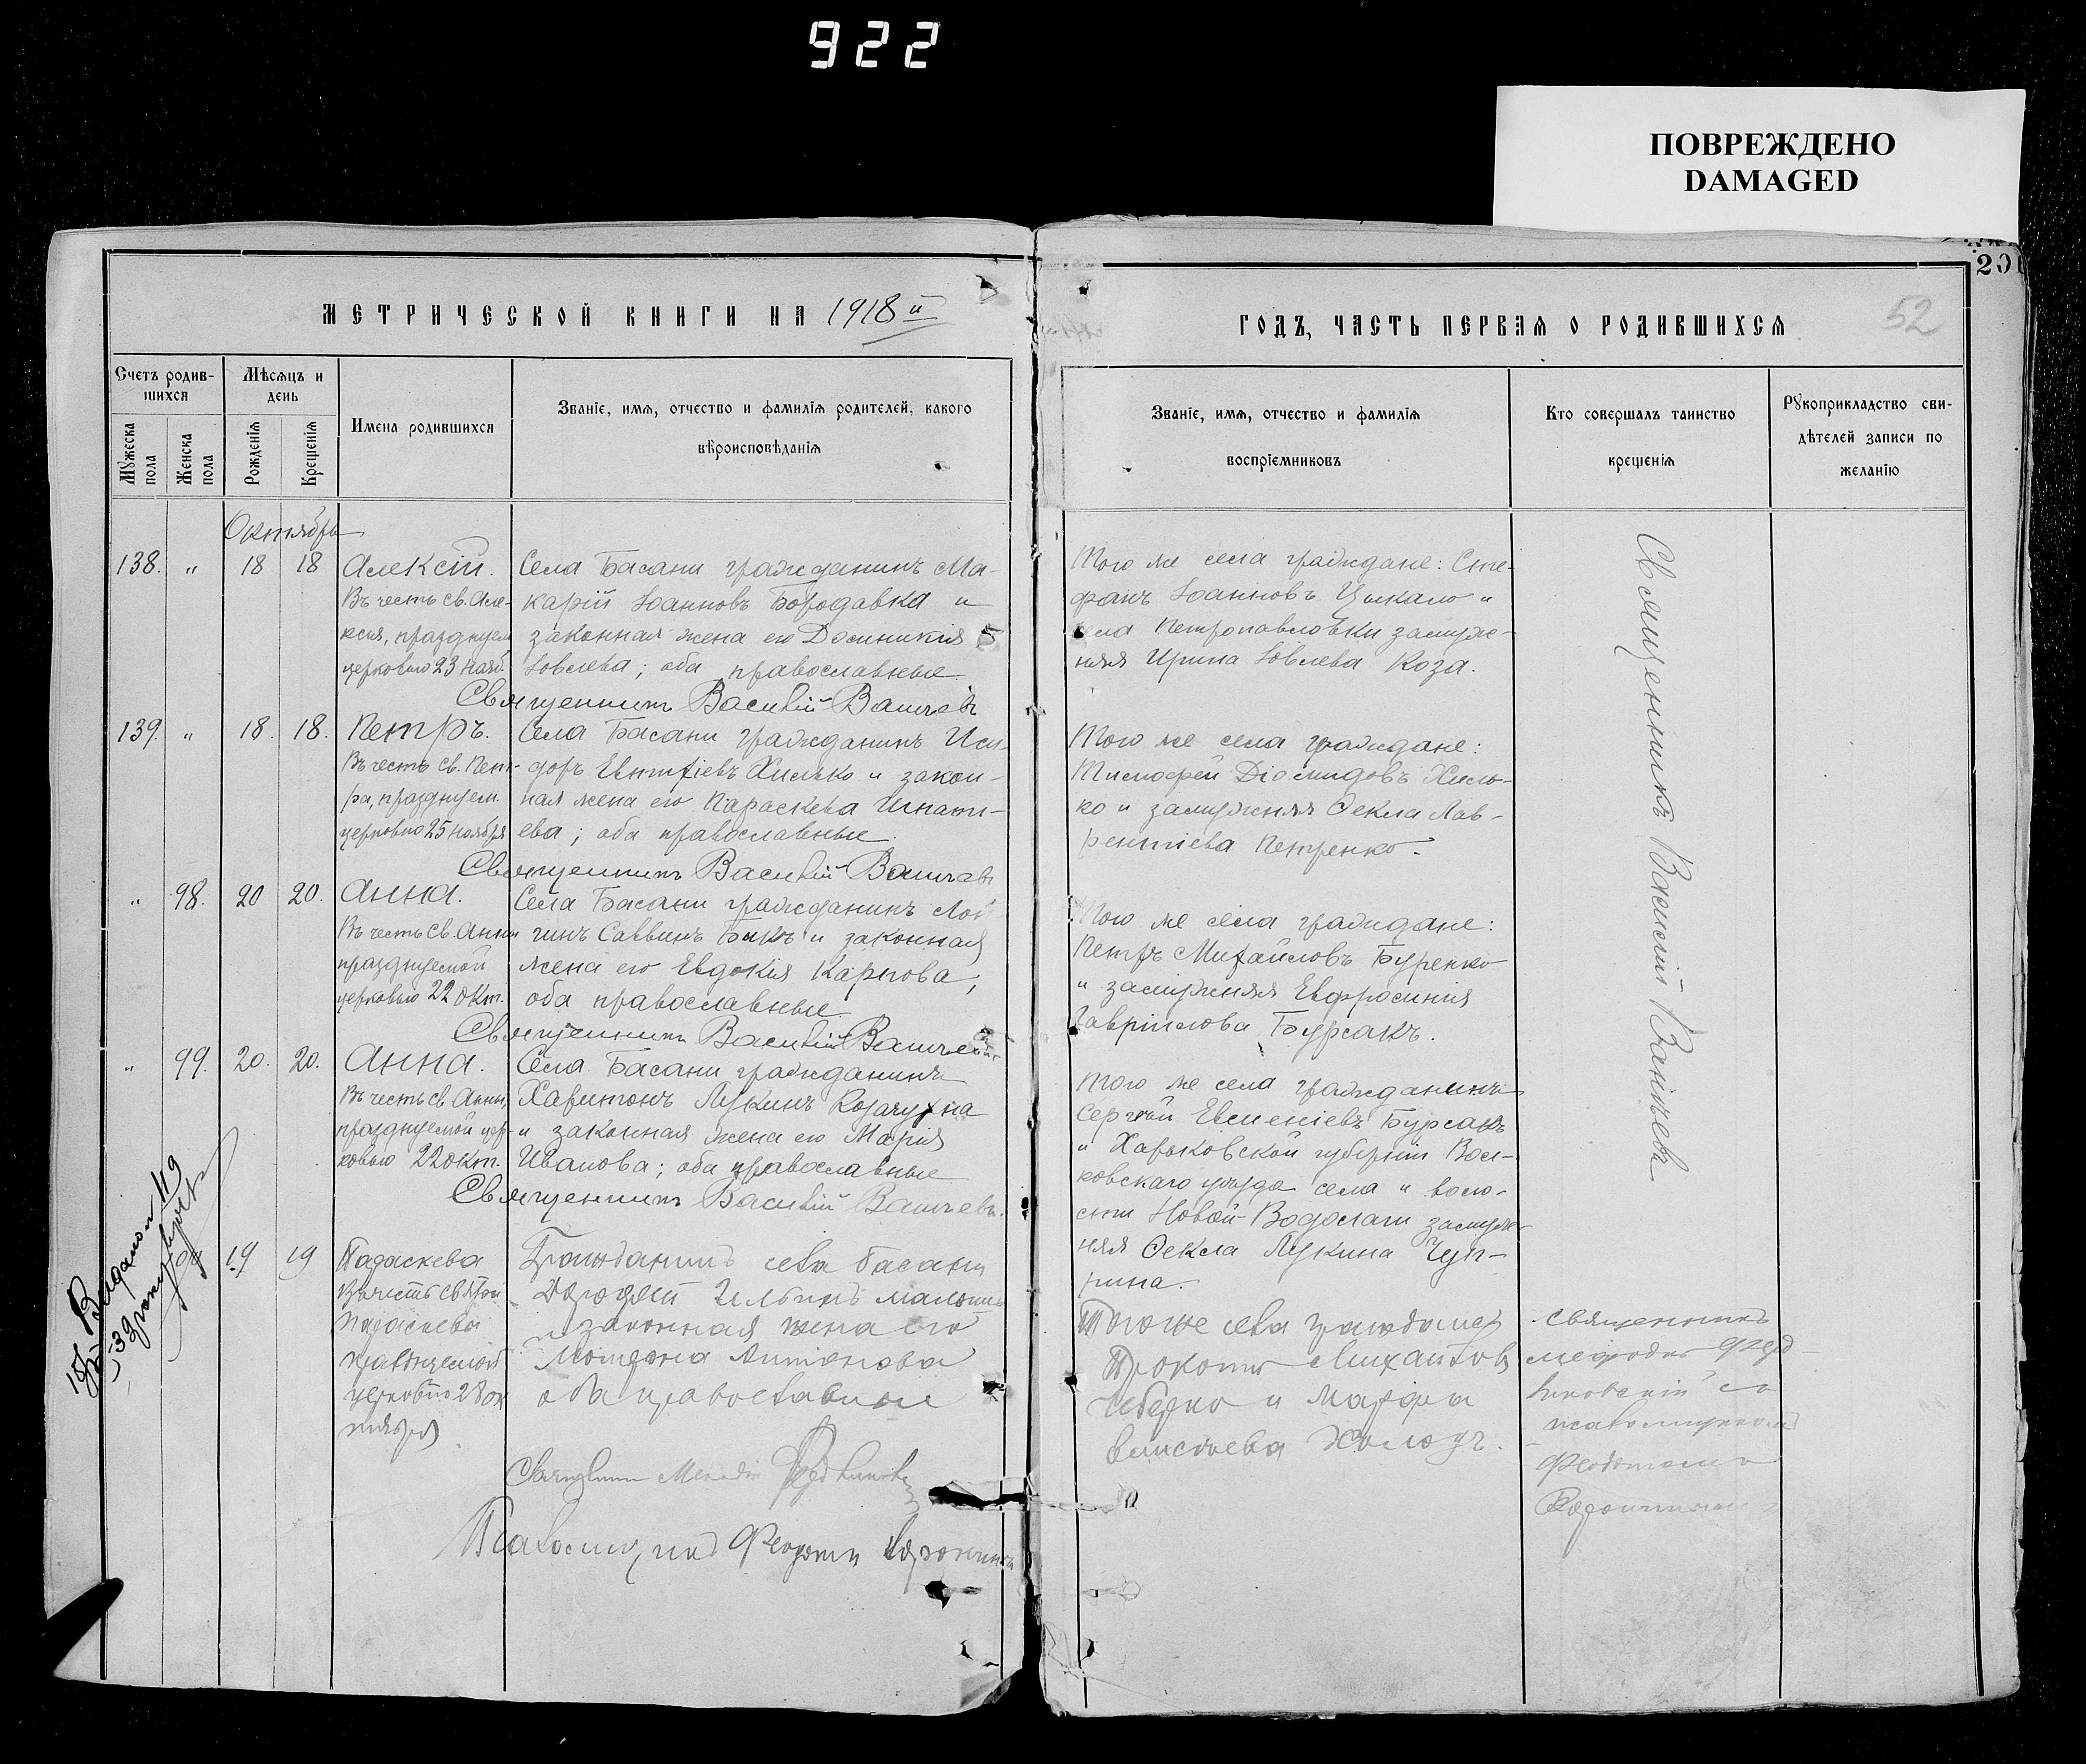 922
ПОВРЕЖДЕНО
DAMAGED
201
52
МЕТРИЧЕСКОЙ КНИГИ НА 1918й
ГОДЪ, ЧАСТЬ ПЕРВАЯ О РОДИВШИХСЯ
Счетъ родив-
шихся
Мѣсяцъ и
день
Мужеска пола
Женска пола
Рожденія
Крещенія
Имена родившихся
Званіе, имя, отчество и фамилія родителей, какого
вѣроисповѣданія
Званіе, имя, отчество и фамилія
воспріемниковъ
Кто совершалъ таинство
крещенія
Рукоприкладство сви-
дѣтелей записи по
желанію
Октябрь
138. " 18 18 Алексій.
Въ честь св. Але-
ксія, празднуем
церковью 23 нояб.
Села Басани гражданинъ Ма-
карій Іоанновъ Бородавка и
законная жена его Домникія
Іовлева; оба православные.
Священникъ Василій Ваничевъ
Того же села граждане: Сте-
фанъ Іоанновъ Цыкало и
села Петропавловки замуж-
няя Ирина Іовлева Коза.
Священникъ Василій Ваничевъ
139. " 18. 18. Петръ.
Въ честь св. Пет-
ра, празднуем.
церковью 25 ноября
Села Басани гражданинъ Иси-
доръ Евтихіевъ Хилько и закон-
ная жена его Параскева Игнать-
ева; оба православные.
Священникъ Василій Ваничевъ
Того же села граждане:
Тимофей Діомидовъ Хиль-
ко и замужняя Ѳекла Лав-
рентіева Петренко.
" 98. 20 20. Анна.
Въ честь св. Анны
празднуемой
церковью 22 окт.
Села Басани гражданинъ Лон-
гинъ Саввинъ Быкъ и законная
жена его Евдокія Карпова;
оба православные
Священникъ Василій Ваничевъ
Того же села граждане:
Петръ Михайловъ Буренко
и замужняя Евфросинія
Гавріилова Бурсакъ.
" 99. 20. 20. Анна.
Въ честь св. Анны,
празднуемой цер-
ковью 22 окт.
Села Басани гражданинъ
Харитонъ Лукинъ
и законная жена его Марія
Иванова; оба православные
Священникъ Василій Ваничевъ.
Того же села гражданинъ
Сергѣй Евменіевъ Бурсакъ
и Харьковской губерніи Вал-
ковскаго уѣзда села и воло-
сти Новой-Водолаги замуж-
няя Ѳекла Лукина Чуп-
рина.
19 19 Параскева
Въ честь святой
Параскевы
празднуемой
церковью 28 ок
тября
Гражданинъ села басани
Дорофей Ильинъ
законная жена его
Мотрона Антонова
оба православные
Священникъ
Псаломщикъ
Того же села граждане
Прокопій Михайловъ
и Марфа
священникъ
псаломщикомъ